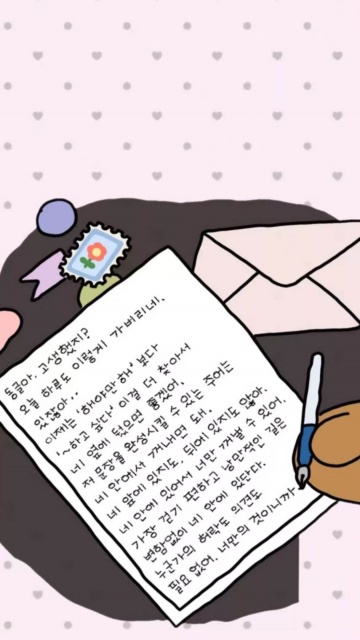 동글아, 고생했지?
오늘 하루도 이렇게 가버리네.
있잖아..
이제는 '해야만 해' 보다
'~하고 싶다' 이걸 더 찾아서
네 옆에 뒀으면 좋겠어.
저 문장을 완성시킬 수 있는 주어는
네 안에서 꺼내면 돼.
네 앞에 있지도, 뒤에 있지도 않아.
네 안에 있어서 너만 꺼낼 수 있어.
가장 걷기 편하고 낭만적인 길은
변함없이 네 안에 있단다.
누군가의 허락도 의견도
필요 없어. 너만의 것이니까